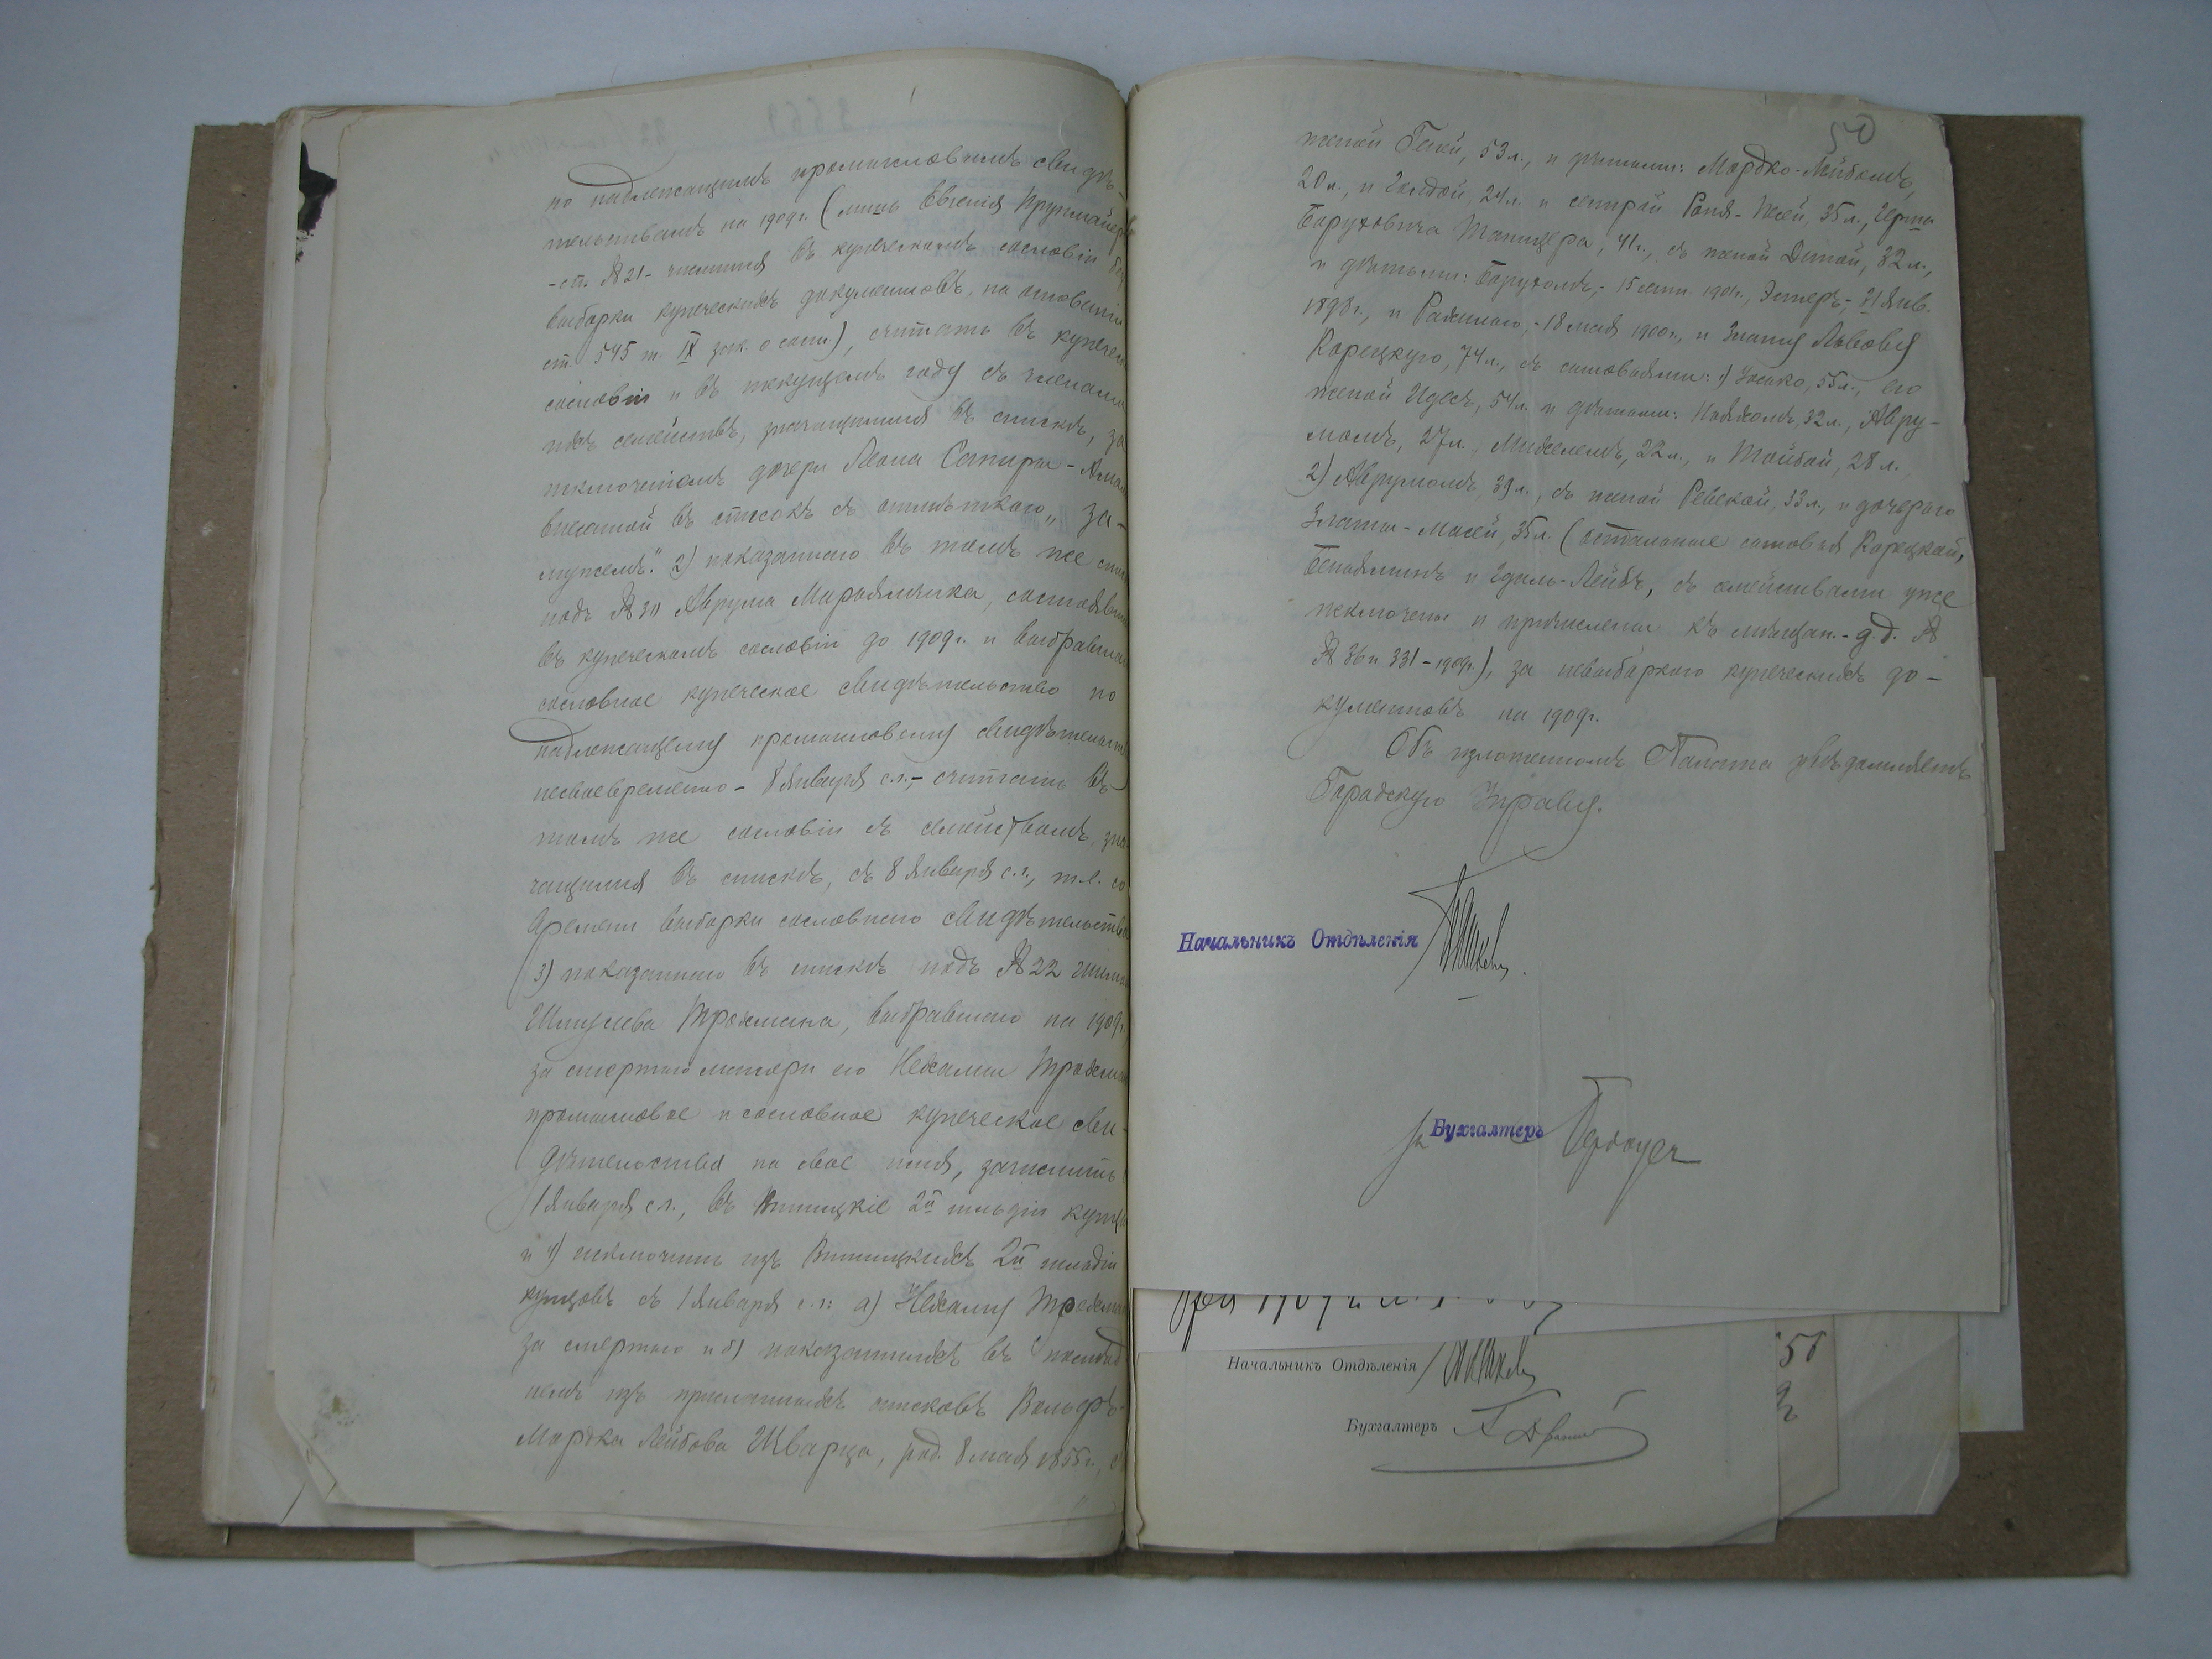 по надлежащимъ промысловымъ свидѣ-
тельствамъ на 1909 г. (лишь Евгенія
-ст. № 21- числится въ купеческомъ сословіи без
выборки купеческихъ документовъ, на основаніи
ст. 545 т. IX зак. о сост.), считать въ купечес
сословіи и въ текущемъ году съ членами
ихъ семействъ, значащимися въ спискѣ, за
исключеніемъ дочери Леона Сапира -
внесенной въ список съ отмѣткою „за-
мужемъ“. 2) показаннаго въ томъ же спис
подъ № 30 Аврума Мараямчика, состоявш
въ купеческомъ сословіи до 1909 г. и выбравшаго
сословное купеческое свидѣтельство по
надлежащему промысловому свидѣтельст
несвоевременно - 8 Января с.г., - считать въ
томъ же сословіи съ семействомъ, зна
чащимся въ спискѣ, съ 8 Января с.г., т.е. со
времени выборки сословнаго свидѣтельства
3) показаннаго въ спискѣ подъ № 22
Шмулева Трахмана, выбравшаго на 1909 г.
за смертью матери его Нехамы Трахман
промысловое и сословное купеческое сви-
дѣтельства на свое имя, зачислить с
1 Января с.г., въ Винницкіе 2й гильдіи купцы
и 4) исключить изъ Винницкихъ 2й гильдіи
купцовъ съ 1 Января с.г.: а) Нехаму Трахман
за смертью и б) показанныхъ въ послѣд
немъ изъ присланныхъ списковъ Вольфъ-
Мордка Лейбова Шварца, род. 8 мая 1855 г., съ
50
женой Геней, 53 л., и дѣтьми: Мордко-Лейбомъ,
20 л., и Голдой, 24 л. и сестрой 35 л.,
Баруховича Танцера, 41 г., съ женой 32 л.,
и дѣтьми: Барухомъ, - 15 сент. 1901 г., Эстеръ, - 21 Янв.
1898 г., и Рахилью, - 18 мая 1900 г., и Злату Львову
Корецкую, 74 л., съ сыновьями: 1) Іосько, 55 л., его
женой Идесъ, 54 л. и дѣтьми: 32 л., Авру-
момъ, 27 л., Михелемъ, 22 л., и Тойбой, 28 л.
2) Аврумомъ, 39 л., съ женой Ревекой, 33 л., и дочерью
Златы - 35 л. (остальные сыновья Корецкой,
Беньяминъ и Лейбъ, съ семействами уже
исключены и причислены къ мѣщан. - д.д. №
№ 36 и 331 - 1909 г.), за невыборкою купеческихъ до-
кументовъ на 1909 г.
Объ изложенномъ Палата увѣдомляетъ
Городскую Управу.
Начальникъ Отдѣленія
за Бухгалтеръ
Начальникъ Отдѣленія
Бухгалтеръ